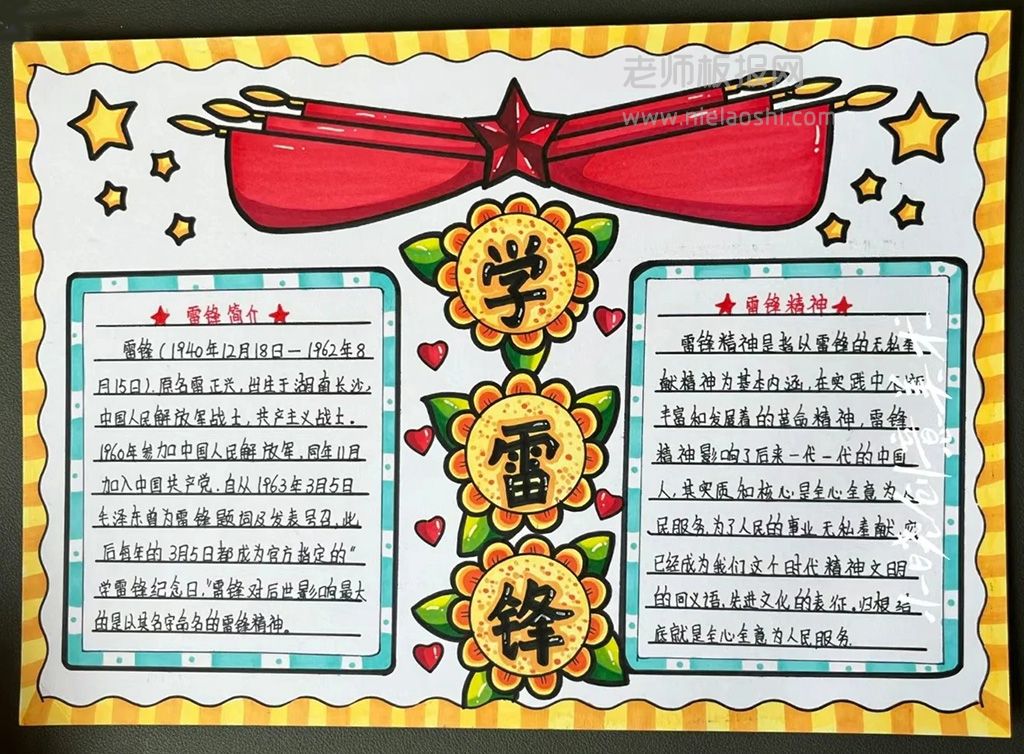 老师板报网
www.nielaoshi.com
学
雷
锋
雷锋简介
雷锋(1940年12月18日—1962年8
月15日),原名雷正兴,出生于湖南长沙,
中国人民解放军战士,共产主义战士。
1960年参加中国人民解放军,同年11月
加入中国共产党.自从1963年3月5日
毛泽东曾为雷锋题词及发表号召,此
后每年的3月5日都成为官方指定的“
学雷锋纪念日,”雷锋对后世影响最大
的是以其名字命名的雷锋精神。
雷锋精神
雷锋精神是指以雷锋的无私奉
献精神为基本内涵,在实践中不断
丰富和发展着的革命精神,雷锋
精神影响了后来一代一代的中国
人,其实质和核心是全心全意为人
民服务,为了人民的事业无私奉献,
已经成为我们这个时代精神文明
的同义语,先进文化的表征。归根结
底就是全心全意为人民服务